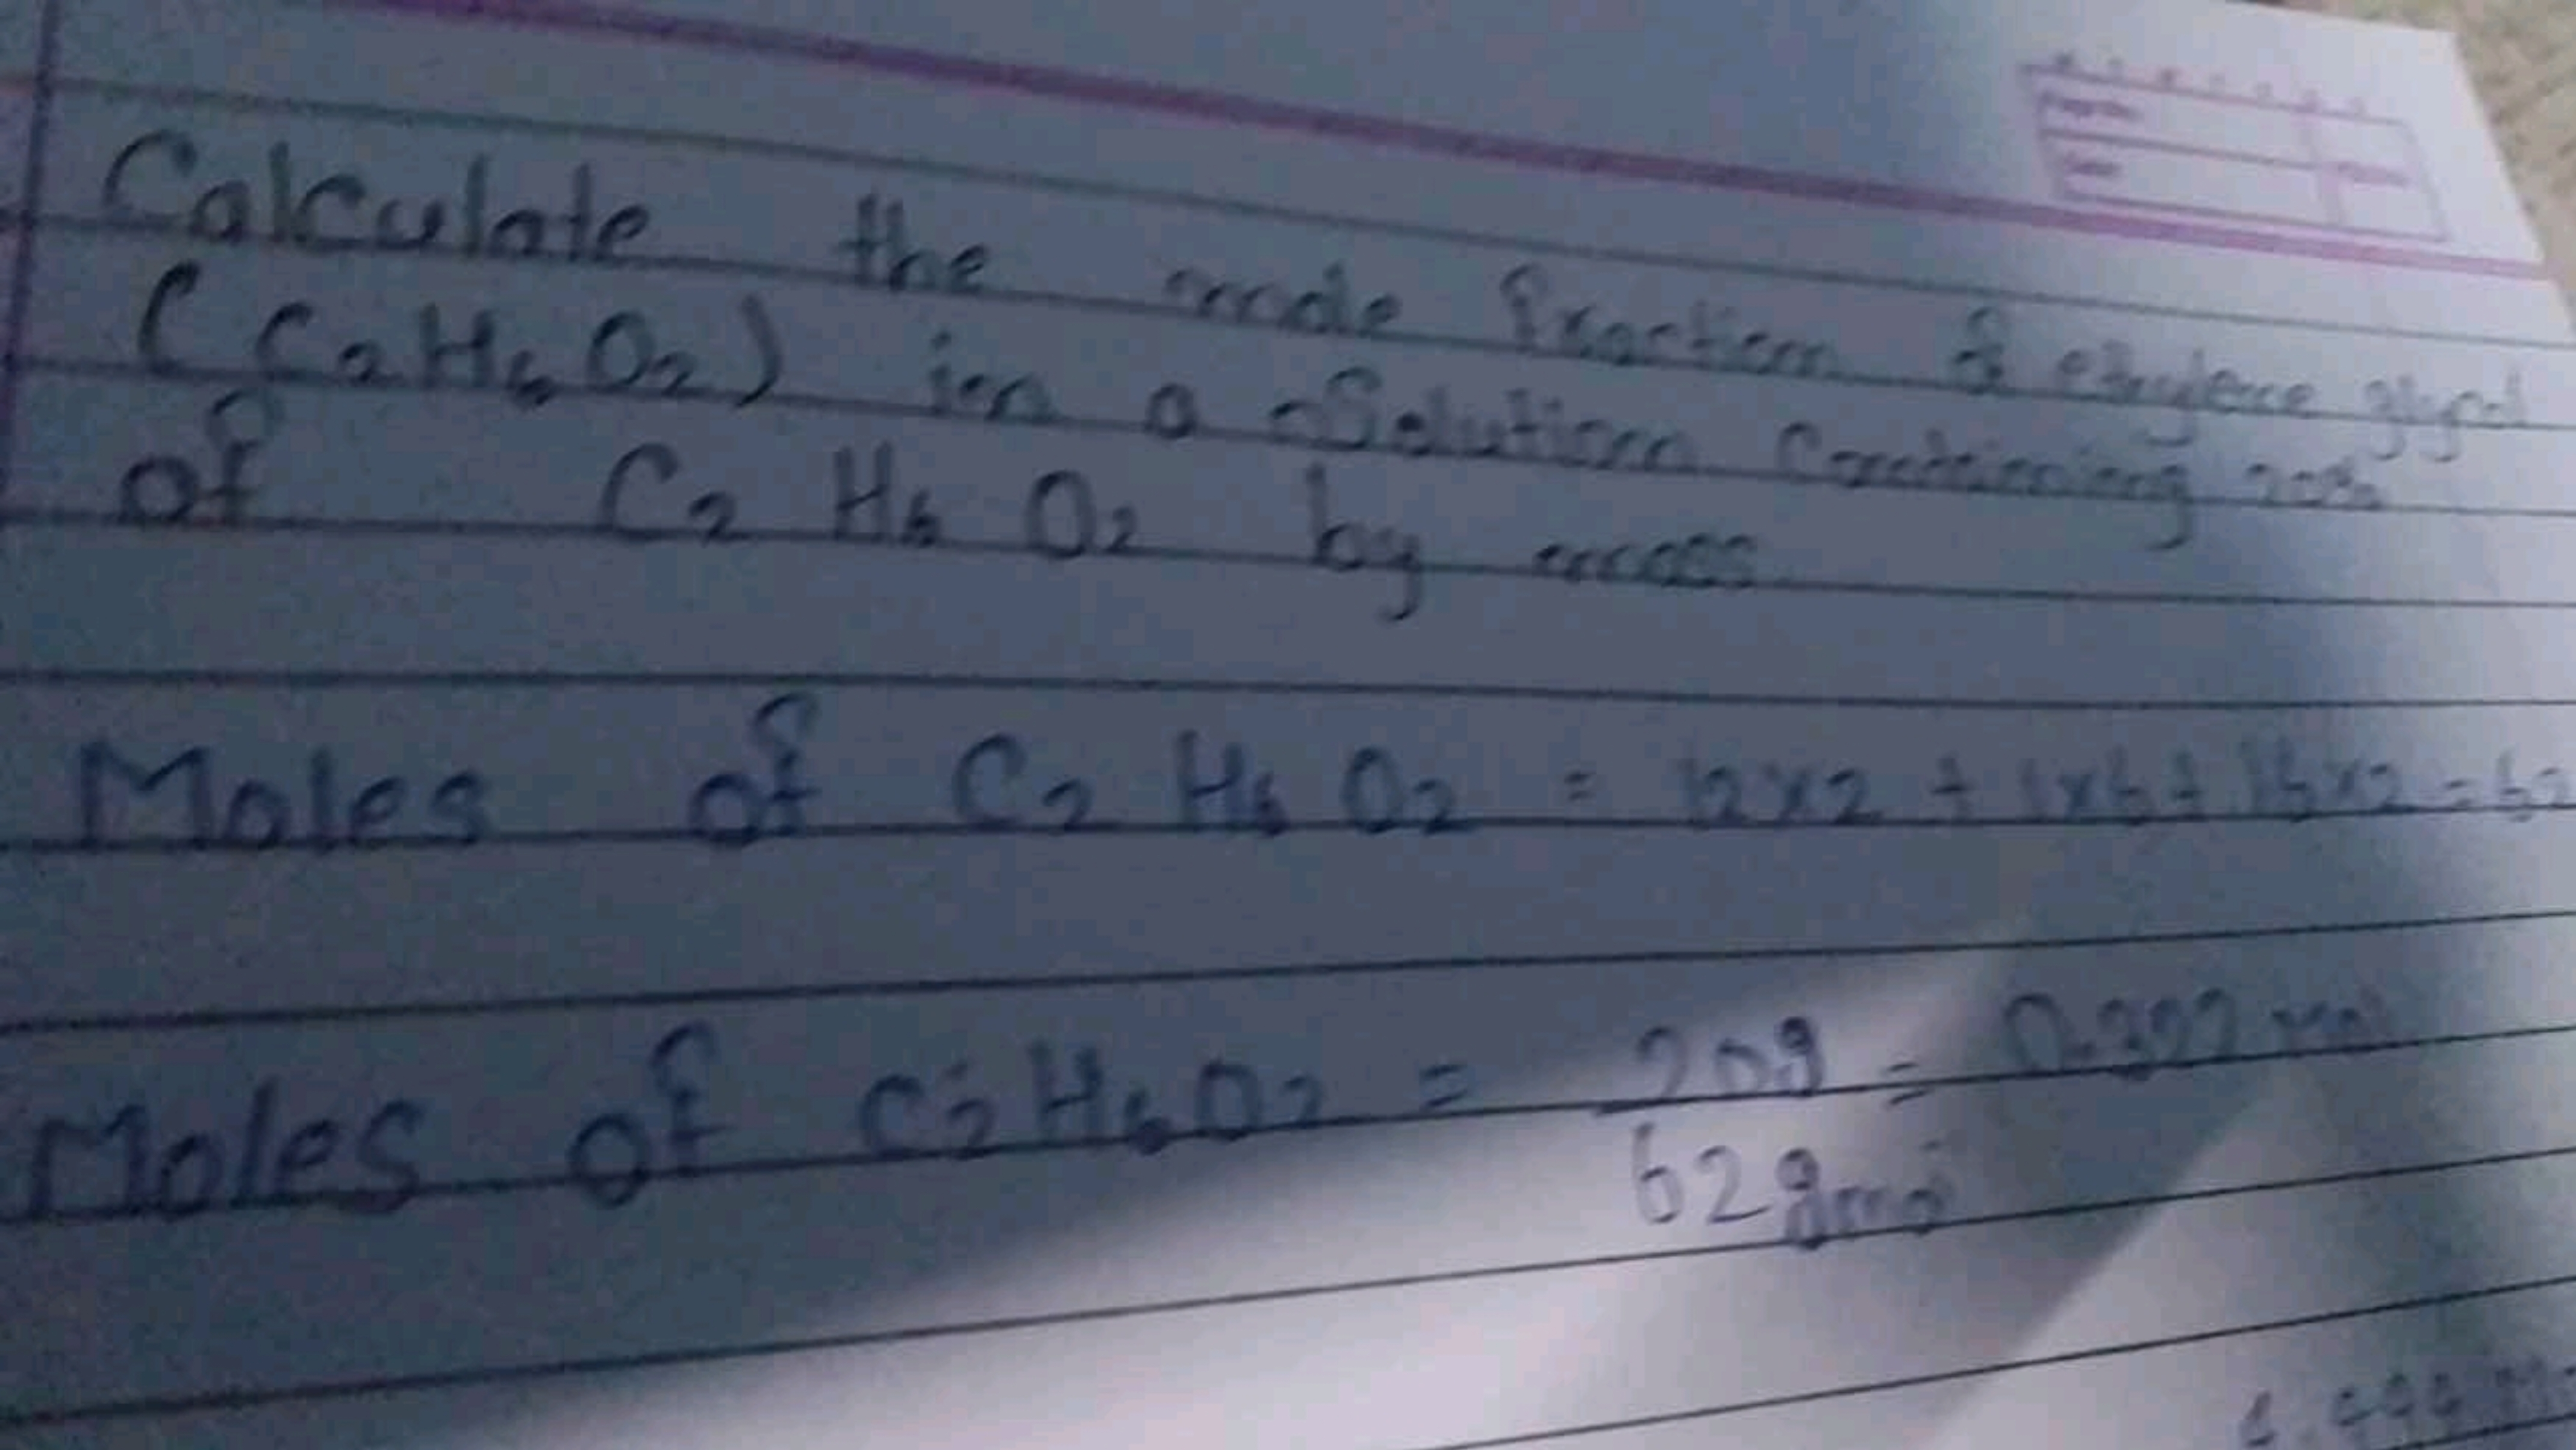 Calculate the mole fraction of ethylene glycol
(C2H6O2) in a Solution Containing 20%
of C2 H6 O2 by mass
Moles of C2 H6 O2 = 12x2 + 1x6+ 16x2 = 62
Moles of C2H6O2 = 20g = 0.322 mol
62 gmol